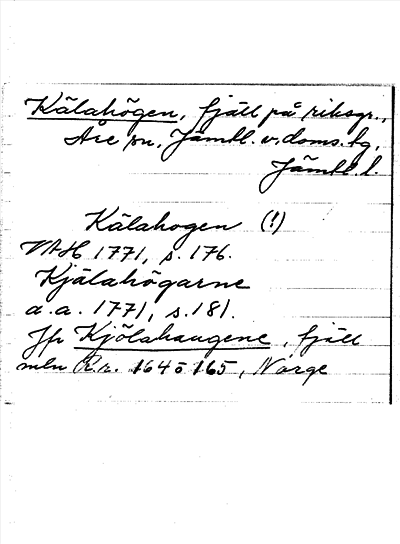 Kälahögen, fjäll på riksgr.,
Åre sn, Jämtl. v. doms. tg,
Jämtl. l.
Kälahogen (!)
VAH 1771, s. 176.
Kjälahögarne
a.a. 1771, s. 181.
Jfr Kjölahaugene, fjäll
mln R.r. 164 o 165, Norge